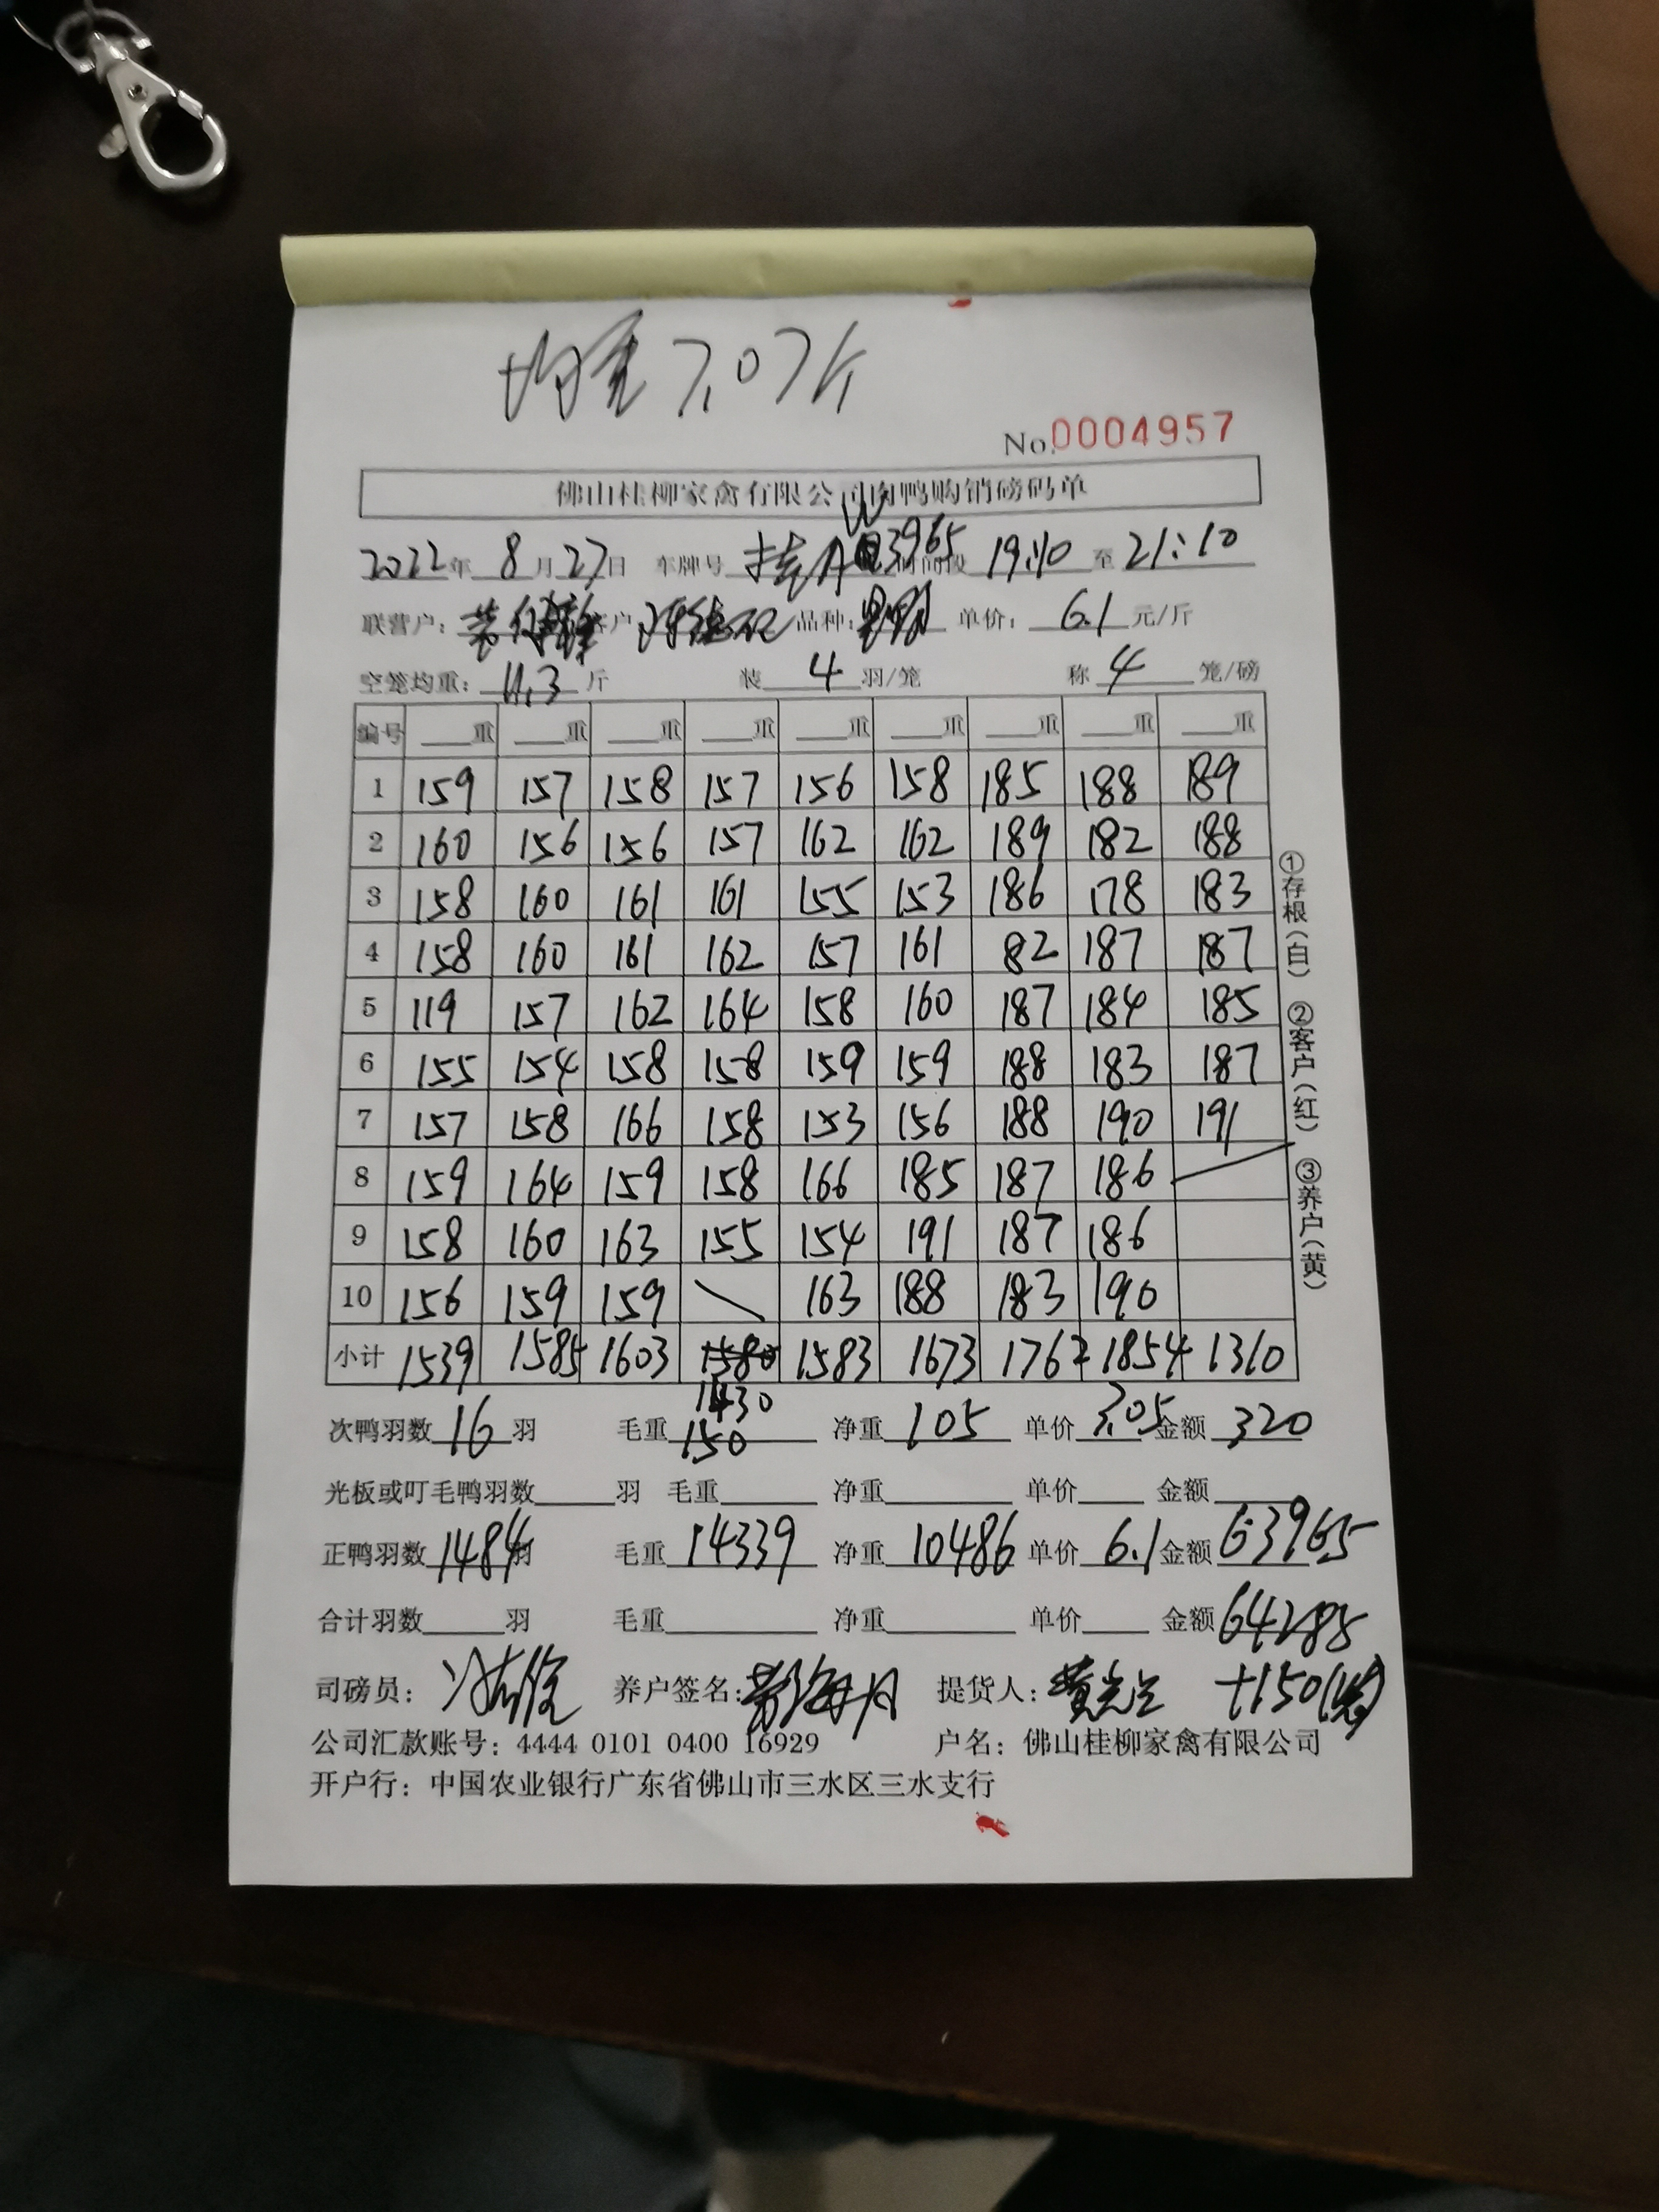 均重7.07斤
No.0004957
佛山桂柳家禽有限公司肉鸭购销磅码单
2022年 8月27日 车牌号 桂A 3965 时间段 19:10 至 21:10
联营户: 客户 品种: 单价: 6.1 元/斤
空笼均重: 11.3 斤 装 4 羽/笼 称 4 笼/磅
编号 重 重 重 重 重 重 重 重 重
1 159 157 158 157 156 158 185 188 189
2 160 156 156 157 162 162 189 182 188
3 158 160 161 161 155 153 186 178 183
4 158 160 161 162 157 161 82 187 187
5 119 157 162 164 158 160 187 184 185
6 155 154 158 158 159 159 188 183 187
7 157 158 166 158 153 156 188 190 191
8 159 164 159 158 166 185 187 186
9 158 160 163 155 154 191 187 186
10 156 159 159 163 188 183 190
小计 1539 1585 1603 1580 1583 1673 1762 1854 1310
1430
次鸭羽数 16 羽 毛重 150 净重 105 单价 3.05 金额 320
光板或叮毛鸭羽数 羽 毛重 净重 单价 金额
正鸭羽数 1484 羽 毛重 14339 净重 10486 单价 6.1 金额 63965
合计羽数 羽 毛重 净重 单价 金额 64285
司磅员: 养户签名: 提货人: +150
公司汇款账号: 4444 0101 0400 16929 户名: 佛山桂柳家禽有限公司
开户行: 中国农业银行广东省佛山市三水区三水支行
①存根(白) ②客户(红) ③养户(黄)